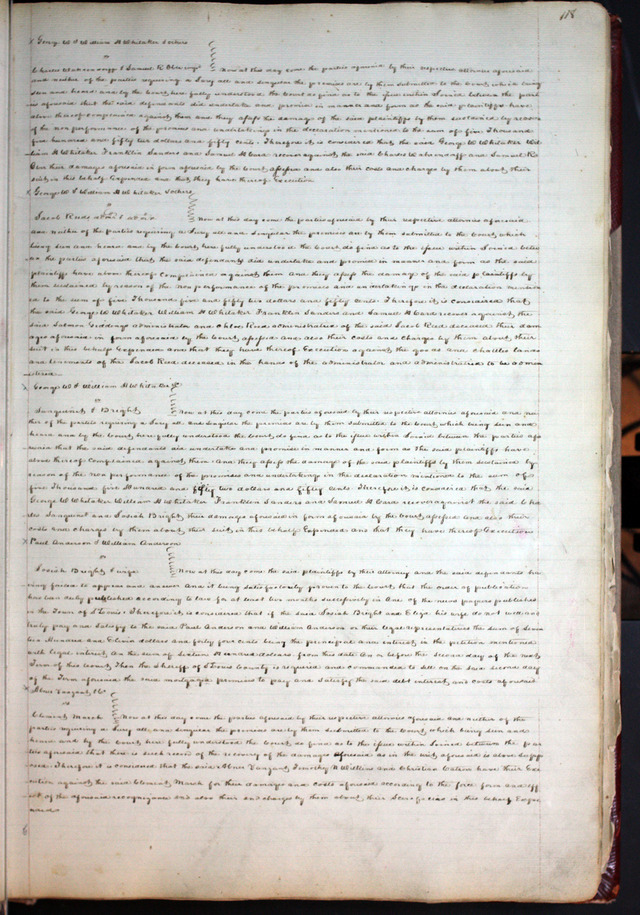 118
George W & William H Whitaker
vs
Charles Wahrendorff & Samuel R Ober Now at this day come the parties aforesaid by their respective attornies aforesaid
and neither of the parties requiring a Jury all and singular the premises are by them submitted to the Court, which being
seen and heard and by the Court here fully understood the Court do find as to the issue within Joined between the parti
es aforesaid that the said defendants did undertake and promise in manner and form as the said plaintiffs have
above thereof complained against them and they assess the damage of the said plaintiffs by them sustained by reason
of the non performance of the promises and undertakings in the declaration mentioned to the sum of five Thousand
five hundred and fifty two dollars and fifty cents. Therefore it is considered that the said George W Whitaker Wil
liam H Whitaker Franklin Sanders and Samuel H Ward recover against the said Charles Wahrendorff and Samuel R
Ober their damages aforesaid in form aforesaid by the Court assessed and also their costs and charges by them about their
suit in this behalf Expended and that they have thereof Execution
George W & William H Whitaker
vs
Jacob Reeds Now at this day come the parties aforesaid by their respective attornies aforesaid
and neither of the parties requiring a Jury all and Singular the premises are by them submitted to the Court, which
being seen and heard and by the Court here fully understood the Court do find as to the issue within Joined betwe
en the parties aforesaid that the said defendants did undertake and promise in manner and form as the said
plaintiffs have above thereof Complained against them and they assess the damage of the said plaintiffs by
them sustained by reason of the non performance of the promises and undertakings in the declaration mention
ed to the sum of five Thousand five and fifty two dollars and fifty cents Therefore it is Considered that
the said George W Whitaker William H Whitaker Franklin Sanders and Samuel H Ward recover against the
said Salmon Giddings administrator and Chloe Reed administratrix of the said Jacob Reed deceased their dam
ages aforesaid in form aforesaid by the Court, assessed and also their Costs and Charges by them about their
suit in this behalf Expended and that they have thereof Execution against the goods and chattles lands
and tenements of the Jacob Reed deceased in the hands of the administrator and administratrix to be admin
istered
George W & William H Whitaker &c
vs
Sanguinet & Bright Now at this day come the parties aforesaid by their respective attornies aforesaid and nei
ther of the parties requiring a Jury all and Singular the premises are by them submitted to the Court, which being seen and
heard and by the Court here fully understood the Court do find as to the issue within Joined between the parties afo
resaid that the said defendants did undertake and promise in manner and form as the said plaintiffs have
above thereof Complained against them And they assess the damage of the said plaintiffs by them sustained by
reason of the non performance of the promises and undertakings in the declaration mentioned to the sum of
five Thousand five Hundred and fifty two dollars and fifty cents Therefore it is considered that the said
George W Whitaker William H Whitaker Franklin Sanders and Samuel H Ward recover against the said Cha
les Sanguinet and Josiah Bright their damages aforesaid in form aforesaid by the Court, assessed and also their
costs and charges by them about their suit in this behalf Expended and that they have thereof Execution
Paul Anderson & William Anderson
vs
Josiah Bright & wife Now at this day come the said plaintiffs by their attorney and the said defendants ha
ving failed to appear and answer And it being Satisfactorily proven to the Court, that the order of publication
here was duly published according to law for at least two months successively in One of the news papers published
in the Town of St Louis Therefore it is considered that if the said Josiah Bright and Eliza his wife do not well and
truly pay and Satisfy to the said Paul Anderson and William Anderson or their legal representatives the sum of Seven
teen Hundred and Eleven dollars and forty four cents being the principal and interest in the petition mentioned
with legal interest, on the sum of Sixteen Hundred dollars from this date on or before the second day of the next
Term of this Court Then the Sheriff of St Louis County is required and commanded to sell on the said second day
of the Term aforesaid the said mortgaged premises to pay and Satisfy the said debt interest and costs aforesaid
Abner Vanzant &c
vs
Clement March Now at this day come the parties aforesaid by their respective attornies aforesaid and neither of the
parties requiring a Jury all and singular the premises are by them submitted to the Court, which being seen and
heard and by the Court here fully understood the Court do find as to the issue within Joined between the par
ties aforesaid that there is such record of the recovery of the damages aforesaid as in the writ aforesaid is above suppo
sed Therefore it is considered that the said Abner Vanzant Timothy N Williams and Christian Watson have their Exe
cution against the said Clement March for their damages and costs aforesaid according to the force form and eff
ect of the aforesaid recognizance and also their and charges by them about their Scire facias in this behalf Expe
nded